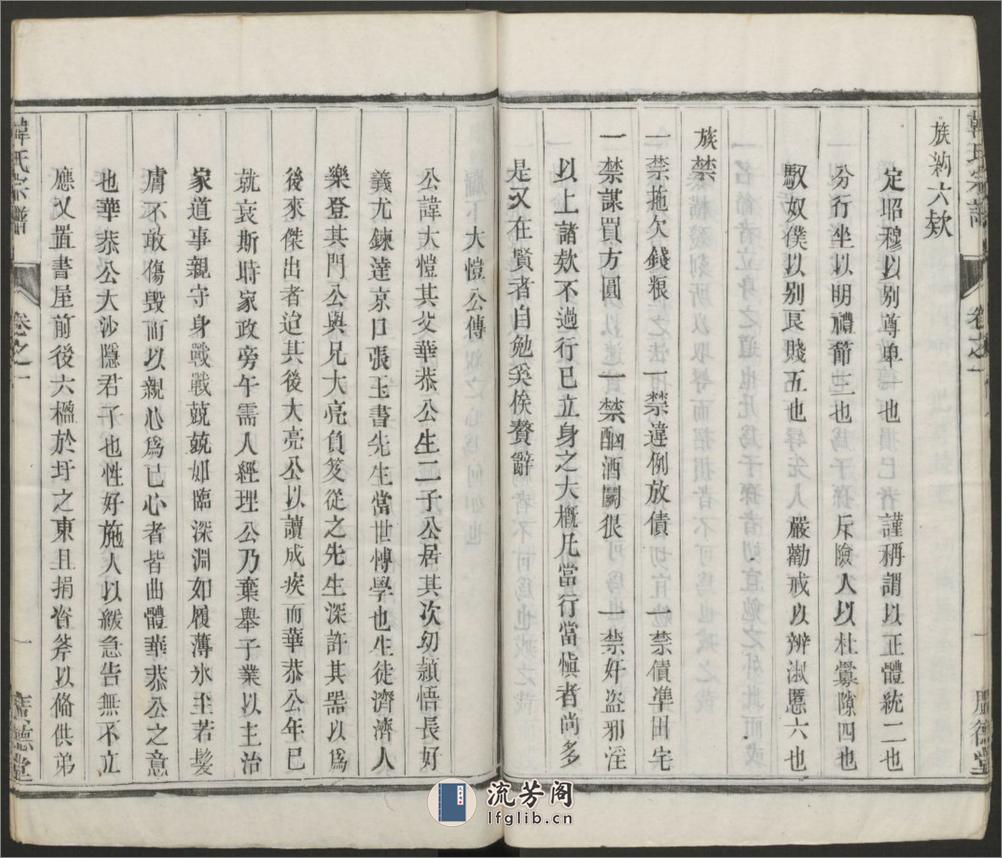 族約六欵
定昭穆以别尊卑一也 謹稱謂以正體統二也
分行坐以明禮節三也 斥險人以杜釁隙四也
馭奴僕以别良賤五也 嚴勸戒以辨淑慝六也
族禁
一禁拖欠錢粮 一禁違例放債 一禁債準田宅
一禁謀買方圓 一禁酗酒鬭很 一禁奸盗邪淫
以上諸欵不過行已立身之大概凡當行當愼者尚多
是又在賢者自勉奚俟贅辭
韓氏宗譜
卷之一
一
大愷公傳
公諱大愷其父華恭公生二子公居其次幼頴悟長好
義尤鍊達京口張玉書先生當世博學也生徒濟濟人
樂登其門公與兄大亮負笈從之先生深許其器以爲
後來傑出者迨其後大亮公以讀成疾而華恭公年已
就衰斯時家政旁午需人經理公乃棄舉子業以主治
家道事親守身戰戰兢兢如臨深淵如履薄氷至若髮
膚不敢傷毁而以親心爲已心者皆曲體華恭公之意
也華恭公大沙隱君子也性好施人以緩急告無不立
應又置書屋前後六楹於圩之東且捐資斧以俻供弟
韓氏宗譜
卷之一
一
德堂
流芳阁
lfglib.cn